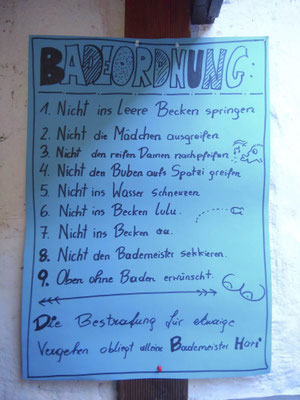 BADEORDNUNG:
1. Nicht ins Leere Becken springen
2. Nicht die Mädchen ausgreifen
3. Nicht den reifen Damen nachpfeifen
4. Nicht den Buben aufs Spatzi greifen
5. Nicht ins Wasser schneuzen
6. Nicht ins Becken lulu.
7. Nicht ins Becken aa.
8. Nicht den Bademeister sekkieren.
9. Oben ohne Baden erwünscht.
Die Bestrafung für etwaige
Vergehen obliegt alleine Bademeister Hari